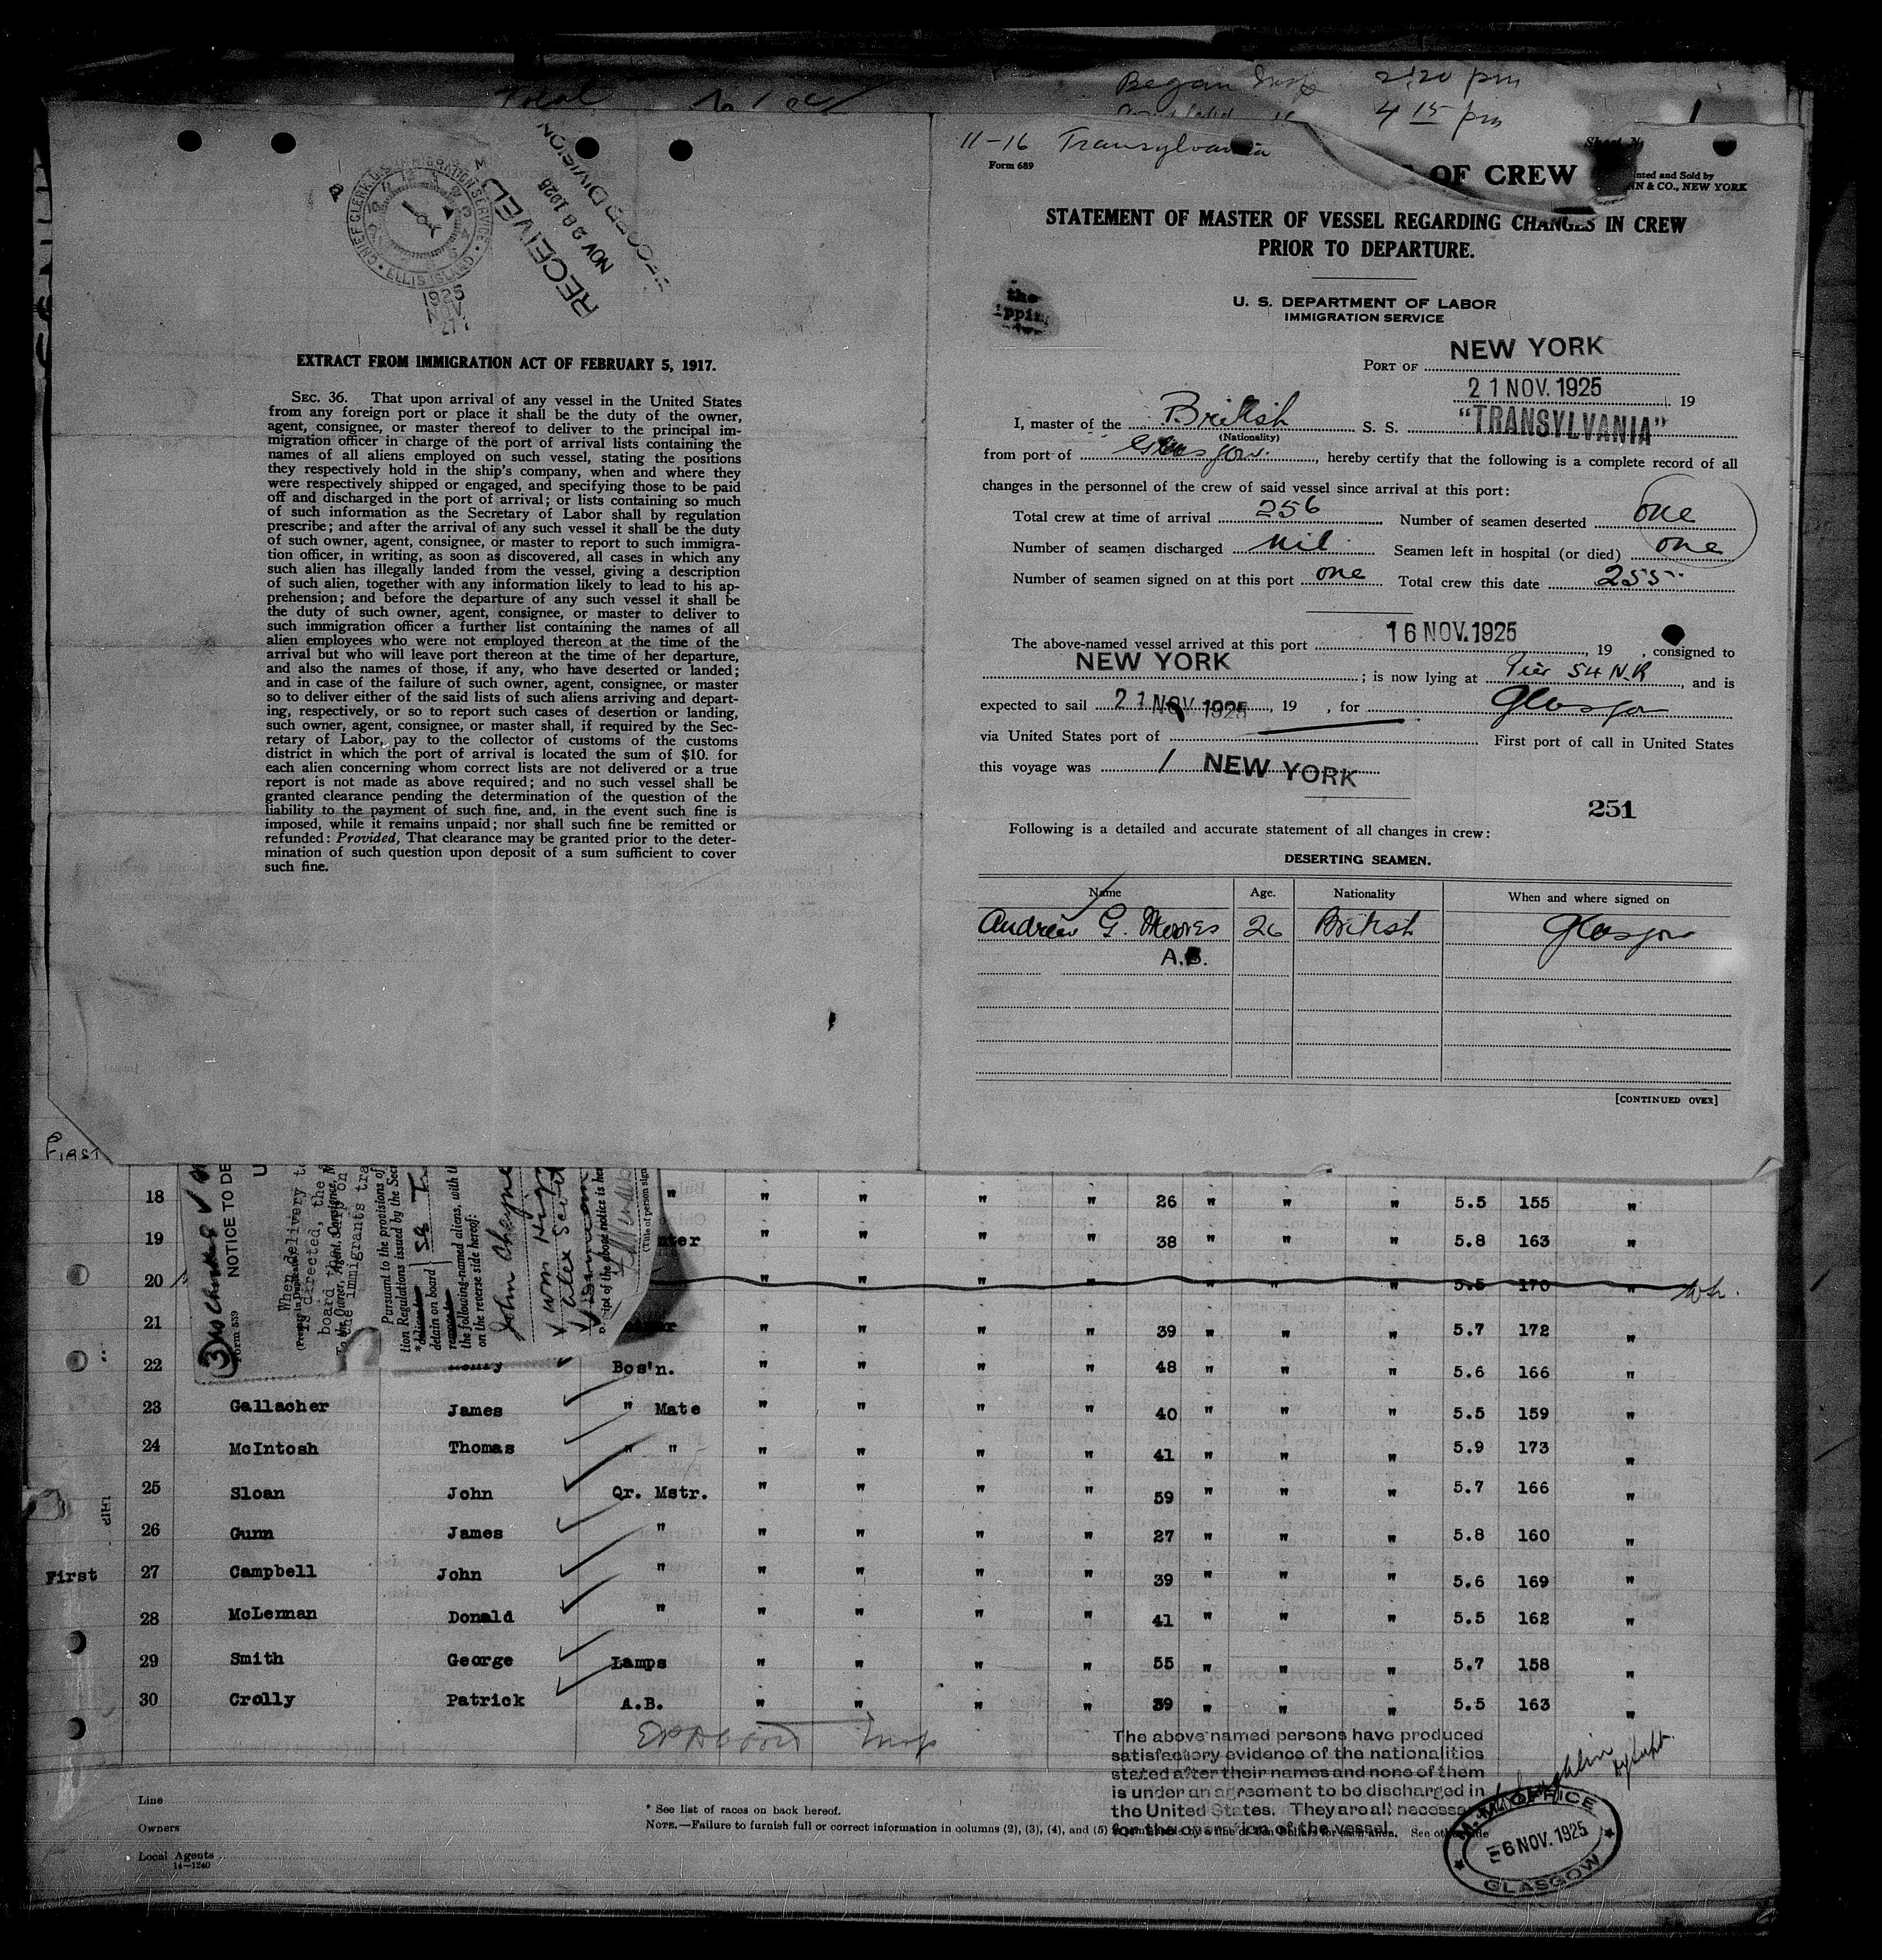 Total
Began Insp 2:20 pm
4 15 pm
CHIEF CLERK U.S. IMMIGRATION SERVICE
ELLIS ISLAND
1925
NOV
27
RECEIVED
NOV 28 1925
RECORD DIVISION
EXTRACT FROM IMMIGRATION ACT OF FEBRUARY 5, 1917.
SEC. 36. That upon arrival of any vessel in the United States
from any foreign port or place it shall be the duty of the owner,
agent, consignee, or master thereof to deliver to the principal im-
migration officer in charge of the port of arrival lists containing the
names of all aliens employed on such vessel, stating the positions
they respectively hold in the ship's company, when and where they
were respectively shipped or engaged, and specifying those to be paid
off and discharged in the port of arrival; or lists containing so much
of such information as the Secretary of Labor shall by regulation
prescribe; and after the arrival of any such vessel it shall be the duty
of such owner, agent, consignee, or master to report to such immigra-
tion officer, in writing, as soon as discovered, all cases in which any
such alien has illegally landed from the vessel, giving a description
of such alien, together with any information likely to lead to his ap-
prehension; and before the departure of any such vessel it shall be
the duty of such owner, agent, consignee, or master to deliver to
such immigration officer a further list containing the names of all
alien employees who were not employed thereon at the time of the
arrival but who will leave port thereon at the time of her departure,
and also the names of those, if any, who have deserted or landed;
and in case of the failure of such owner, agent, consignee, or master
so to deliver either of the said lists of such aliens arriving and depart-
ing, respectively, or so to report such cases of desertion or landing,
such owner, agent, consignee, or master shall, if required by the Sec-
retary of Labor, pay to the collector of customs of the customs
district in which the port of arrival is located the sum of $10. for
each alien concerning whom correct lists are not delivered or a true
report is not made as above required; and no such vessel shall be
granted clearance pending the determination of the question of the
liability to the payment of such fine, and, in the event such fine is
imposed, while it remains unpaid; nor shall such fine be remitted or
refunded: Provided, That clearance may be granted prior to the deter-
mination of such question upon deposit of a sum sufficient to cover
such fine.
11-16 Transylvania
Form 689
OF CREW
Sheet N
nted and Sold by
NN & CO., NEW YORK
STATEMENT OF MASTER OF VESSEL REGARDING CHANGES IN CREW
PRIOR TO DEPARTURE.
U. S. DEPARTMENT OF LABOR
IMMIGRATION SERVICE
PORT OF NEW YORK
21 NOV. 1925 19
I, master of the British S. S. "TRANSYLVANIA"
(Nationality)
from port of Glasgow, hereby certify that the following is a complete record of all
changes in the personnel of the crew of said vessel since arrival at this port:
Total crew at time of arrival 256 Number of seamen deserted one
Number of seamen discharged nil Seamen left in hospital (or died) one
Number of seamen signed on at this port one Total crew this date 255
The above-named vessel arrived at this port 16 NOV. 1925, 19 , consigned to
NEW YORK ; is now lying at Pier 54 N.R, and is
expected to sail 21 NOV 1925, 19 , for Glasgow
via United States port of First port of call in United States
this voyage was 1 NEW YORK
251
Following is a detailed and accurate statement of all changes in crew:
DESERTING SEAMEN.
Name Age. Nationality When and where signed on
Andrew G. 26 British Glasgow
A.B.
[CONTINUED OVER]
FIRST
Form 539
NOTICE TO DE
When delivery t
is directed, the
board
the immigrants tra
Pursuant to the provisions of
tion Regulations issued by the Sec
detain on board
the following-named aliens, with t
on the reverse side hereof:
John Cheyne
ipt of the above notice is her
(Title of person sign
18 " " " " " 26 " " " 5.5 155 "
19 nter " " " " 38 " " " 5.8 163 "
20 " " " " " " " 5.5 170 "
21 " " " " 39 " " " 5.7 172 "
22 Henry Bos'n. " " " " 48 " " " 5.6 166 "
23 Gallacher James " Mate " " " " 40 " " " 5.5 159 "
24 McIntosh Thomas " " " " " " 41 " " " 5.9 173 "
25 Sloan John Qr. Mstr. " " " " 59 " " " 5.7 166 "
26 Gunn James " " " " " 27 " " " 5.8 160 "
First 27 Campbell John " " " " " 39 " " " 5.6 169 "
28 McLernan Donald " " " " " 41 " " " 5.5 162 "
29 Smith George Lamps " " " " 55 " " " 5.7 158 "
30 Crolly Patrick A.B. " " " " 39 " " " 5.5 163 "
Insp
The above named persons have produced
satisfactory evidence of the nationalities
stated after their names and none of them
is under an agreement to be discharged in
the United States. They are all necessa
for the operation of the vessel.
Line
Owners
Local Agents
14-1240
* See list of races on back hereof.
NOTE.—Failure to furnish full or correct information in columns (2), (3), (4), and (5)
See oth
OFFICE
6 NOV. 1925
GLASGOW